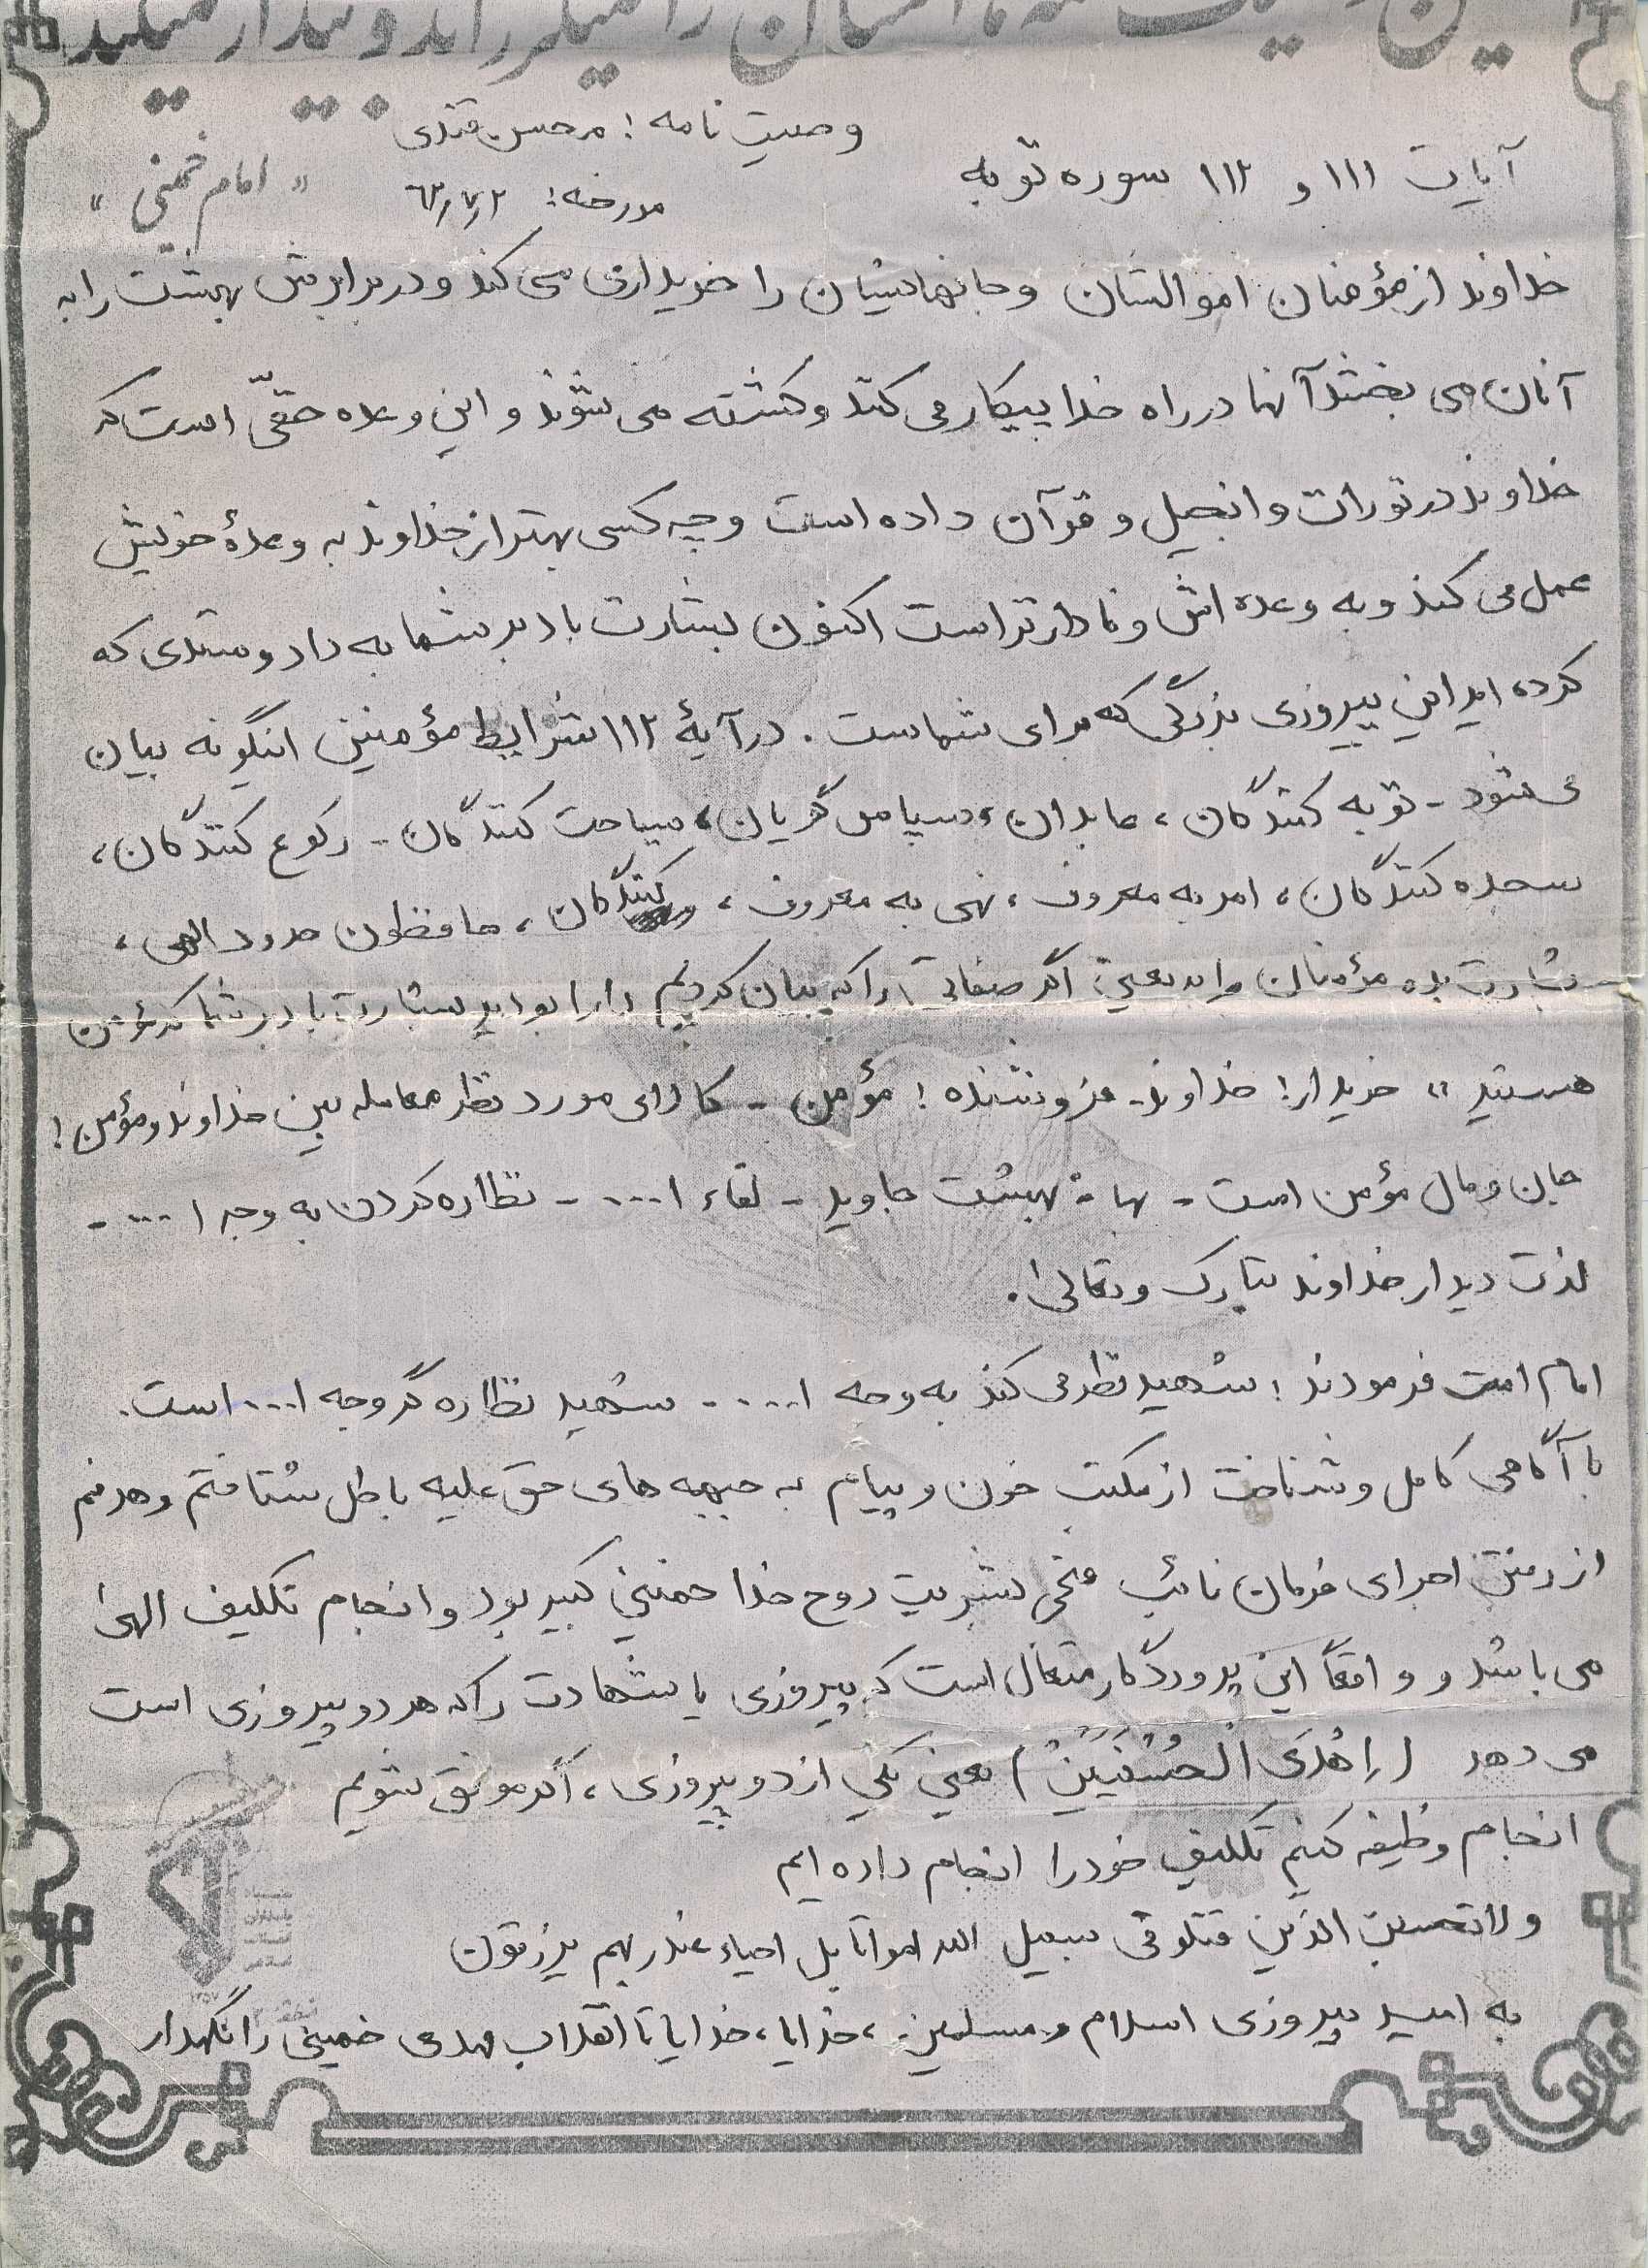 میگیراند و بیدار میکند
وصیت نامه : محسن قندی
آیات ۱۱۱ و ۱۱۲ سوره توبه
مورخه: ۶۳٫۷٫۲
« امام خمینی »
خداوند از مؤمنان اموالشان و جانهایشان را خریداری می کند و در برابرش بهشت را به
آنان می بخشد آنها در راه خدا پیکار می کنند و کشته می شوند و این وعده حقّی است که
خداوند در تورات و انجیل و قرآن داده است و چه کسی بهتر از خداوند به وعدهٔ خویش
عمل می کند و به وعده اش وفادارتر است اکنون بشارت باد بر شما به داد و ستدی که
کرده اید این پیروزی بزرگی که برای شماست . در آیهٔ ۱۱۲ شرایط مؤمنین اینگونه بیان
می شود - توبه کنندگان ، عابدان ، سپاس گویان ، سیاحت کنندگان - رکوع کنندگان ،
سجده کنندگان ، امر به معروف ، نهی به معروف ، کنندگان ، حافظون حدود الهی ،
بشارت بده مؤمنان را به یعنی اگر صفاتی را که بیان کردیم دارا بودید بشارت باد بر شما که مؤمن
هستید " خریدار : خداوند - فروشنده : مؤمن - کالای مورد نظر معامله بین خداوند و مؤمن :
جان و مال مؤمن است - بها : بهشت جاوید - لقاء ا... - نظاره کردن به وجه ا... -
لذت دیدار خداوند تبارک و تعالی .
امام امت فرمودند : شهید نظر می کند به وجه ا... - شهید نظاره گر وجه ا... است .
با آگاهی کامل و شناخت از مکتب خون و پیام به جبهه های حق علیه باطل شتافتم و هدفم
از رفتن اجرای فرمان نائب منجی بشریت روح خدا خمینی کبیر بود و انجام تکلیف الهی
می باشد و واقعاً این پروردگار متعال است که پیروزی یا شهادت را که هر دو پیروزی است
می دهد ( اِحْدَی الْحُسْنَیَیْنْ ) یعنی یکی از دو پیروزی ، اگر موفق شویم
انجام وظیفه کنیم تکلیف خود را انجام داده ایم
ولا تحسبن الذین قتلو فی سبیل الله امواتا بل احیاء عند ربهم یرزقون
به امید پیروزی اسلام و مسلمین ، خدایا ، خدایا تا انقلاب مهدی خمینی را نگهدار